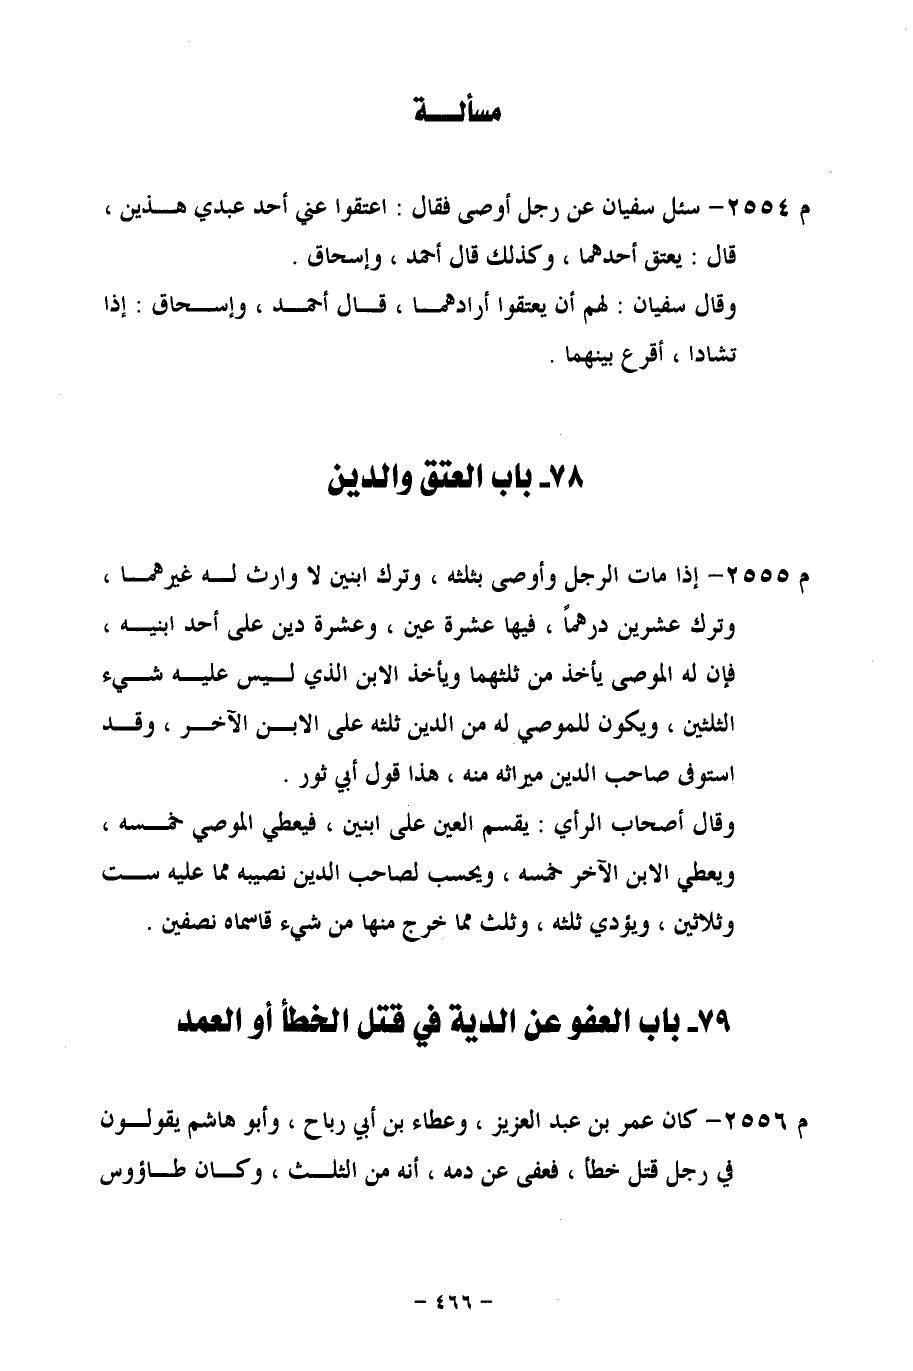 مسألة
م ٢٥٥٤– سئل سفيان عن رجل أوصى فقال : اعتقوا عني أحد عبدي هذين ،
قال : يعتق أحدهما ، وكذلك قال أحمد ، وإسحاق .
وقال سفيان : لهم أن يعتقوا أرادهما ، قال أحمد ، وإسحاق : إذا
تشادا ، أقرع بينهما .
٧٨ـ باب العتق والدين
م ٢٥٥٥– إذا مات الرجل وأوصى بثلثه ، وترك ابنين لا وارث له غيرهما ،
وترك عشرين درهماً ، فيها عشرة عين ، وعشرة دين على أحد ابنيه ،
فإن له الموصي يأخذ من ثلثهما ويأخذ الابن الذي ليس عليه شيء
الثلثين ، ويكون للموصي له من الدين ثلثه على الابن الآخر ، وقد
استوفى صاحب الدين ميراثه منه ، هذا قول أبي ثور .
وقال أصحاب الرأي : يقسم العين على ابنين ، فيعطي الموصي خمسه ،
ويعطي الابن الآخر خمسه ، ويحسب لصاحب الدين نصيبه مما عليه ست
وثلاثين ، ويؤدي ثلثه ، وثلث مما خرج منها من شيء قاسماه نصفين .
٧٩ـ باب العفو عن الدية في قتل الخطأ أو العمد
م ٢٥٥٦– كان عمر بن عبد العزيز ، وعطاء بن أبي رباح ، وأبو هاشم يقولون
في رجل قتل خطأ ، فعفى عن دمه ، أنه من الثلث ، وكان طاؤوس
– ٤٦٦ –